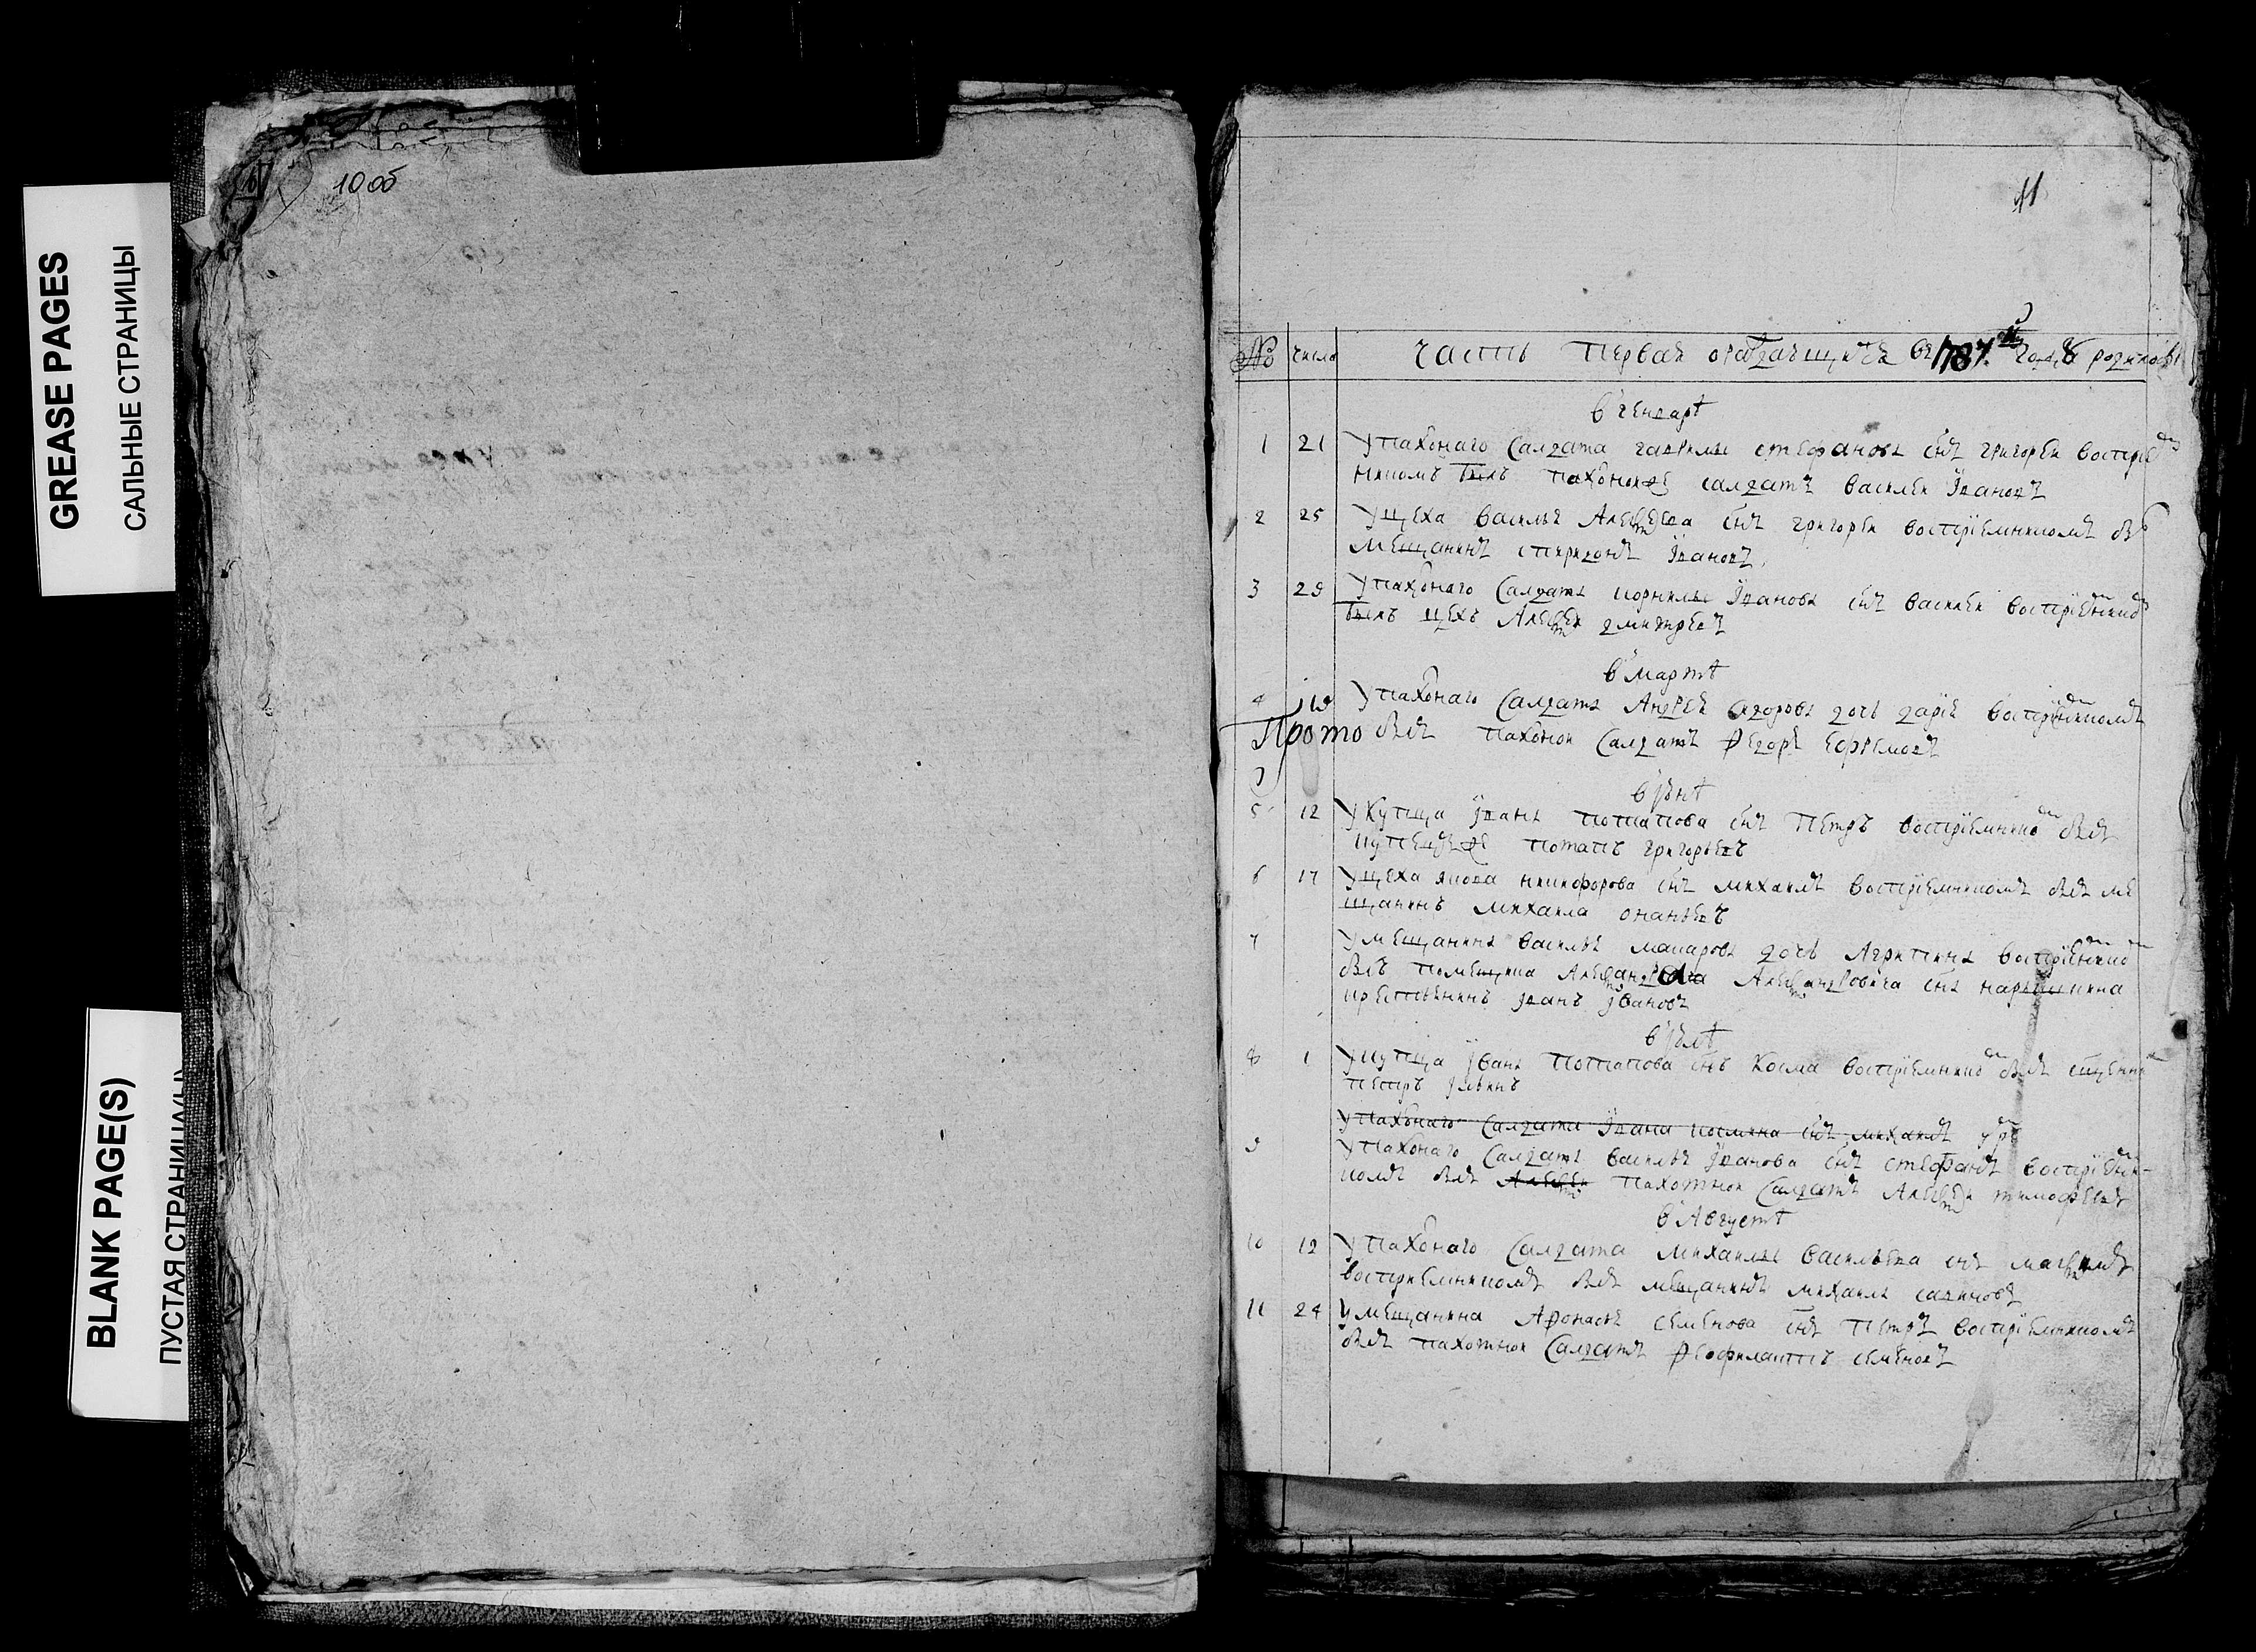 GREASE PAGES
САЛЬНЫЕ СТРАНИЦЫ
BLANK PAGE(S)
ПУСТАЯ СТРАНИЦА(Ы)
10 об
11
№ число часть первая о раждающихся въ 1787 м году
в генварѣ
1 21 У пахонаго Салдата гаврилы стефанова снъ григореи восприе
мникомъ былъ пахонои салдатъ василеи Ївановъ
2 25 У цеха василья Алексѣева снъ григореи воспрїемникомъ
мещанинъ спиридонъ Ївановъ
3 29 У пахонаго Салдата корнилы Їванова снъ василеи воспрїемник
былъ цехъ Алексѣи дмитреевъ
в мартѣ
4 У пахонаго Салдата Андрея дочь дарїя воспрїемникомъ
Прото былъ пахонои Салдатъ Ѳедоръ Ефремовъ
в їюнѣ
5 12 У купца їванa потапова снъ петръ воспрїемнико былъ
потапъ григорьевъ
6 17 У цеха якова никифорова снъ михаилъ воспрїемникомъ былъ ме
щанинъ михаила ононьевъ
7 У мещанина василья макарова дочь Агрипина воспрїемнико
былъ помещика Александра Александровича снa нарышкина
крестьянинъ їванъ ївановъ
в їюлѣ
8 1 У купца їванa потапова снъ косма воспрїемнико былъ сщенни
петръ їльинъ
У пахонаго Салдата Їванa космина снъ михаилъ
9 У пахонаго Салдата василья їванова снъ стефанъ воспрїемни-
комъ былъ Алексѣи пахотнои Салдатъ Алексѣи тимофѣевъ
в Августѣ
10 12 У пахонаго Салдата михаилы васильева снъ максимъ
воспрїемникомъ былъ мещанинъ михаила савиновъ
11 24 У мещанина Афонасья семенова снъ петръ воспрїемникомъ
былъ пахотнои Салдатъ Ѳеофилактъ семеновъ